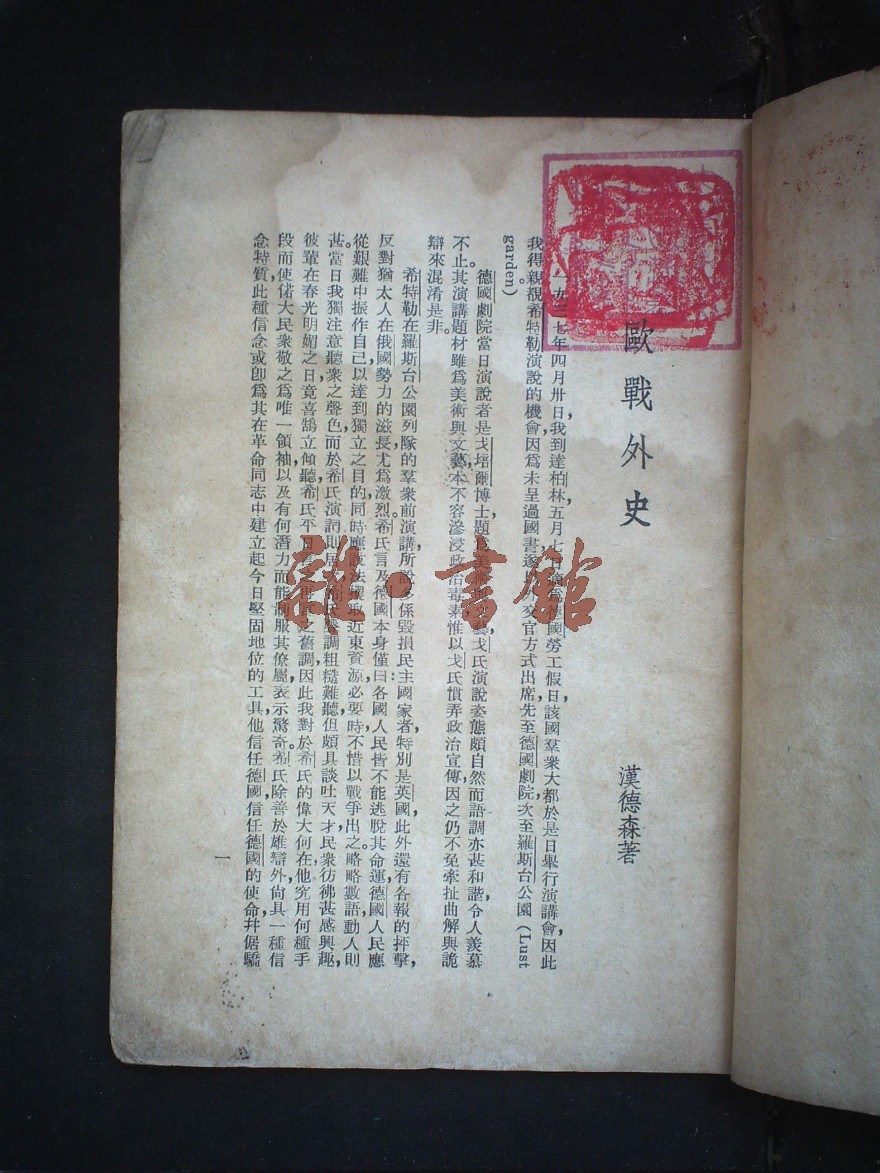 歐戰外史
漢德森著
一九三七年四月卅日,我到達柏林,五月七日,德國勞工假日,該國羣衆大都於是日舉行演講會,因此
我得親覩希特勒演說的機會,因爲未呈過國書,交官方式出席,先至德國劇院,次至羅斯台公園(Lust
garden)。
德國劇院當日演說者是戈培爾博士,題爲美術與文藝,戈氏演說姿態頗自然,而語調亦甚和諧,令人羨慕
不止。其演講題材雖爲美術與文藝,本不容滲浸政治毒素,惟以戈氏慣弄政治宣傳,因之仍不免牽扯曲解與詭
辯來混淆是非。
希特勒在羅斯台公園列隊的羣衆前演講,所說多係毀損民主國家者,特別是英國,此外還有各報的抨擊,
反對猶太人在俄國勢力的滋長,尤爲激烈。希氏言及德國本身,僅曰:各國人民皆不能逃脫其命運,德國人民應
從艱難中振作自己,以達到獨立之目的,同時應設法攫取近東資源,必要時不惜以戰爭出之。略略數語,動人則
甚。當日我獨注意聽衆之聲色,而於希氏演詞則居次,聲調粗糙難聽,但頗具談吐天才,民衆彷彿甚感興趣,
彼輩在春光明媚之日,竟喜鵠立傾聽希氏平日之舊調,因此我對於希氏的偉大何在,他究用何種手
段而使偌大民衆敬之爲唯一領袖,以及有何潛力而能制服其僚屬,表示驚奇。希氏除善於雄辯外,尙具一種信
念特質,此種信念或卽爲其在革命同志中建立起今日堅固地位的工具,他信任德國,信任德國的使命,幷倨驕
一
雜·書館